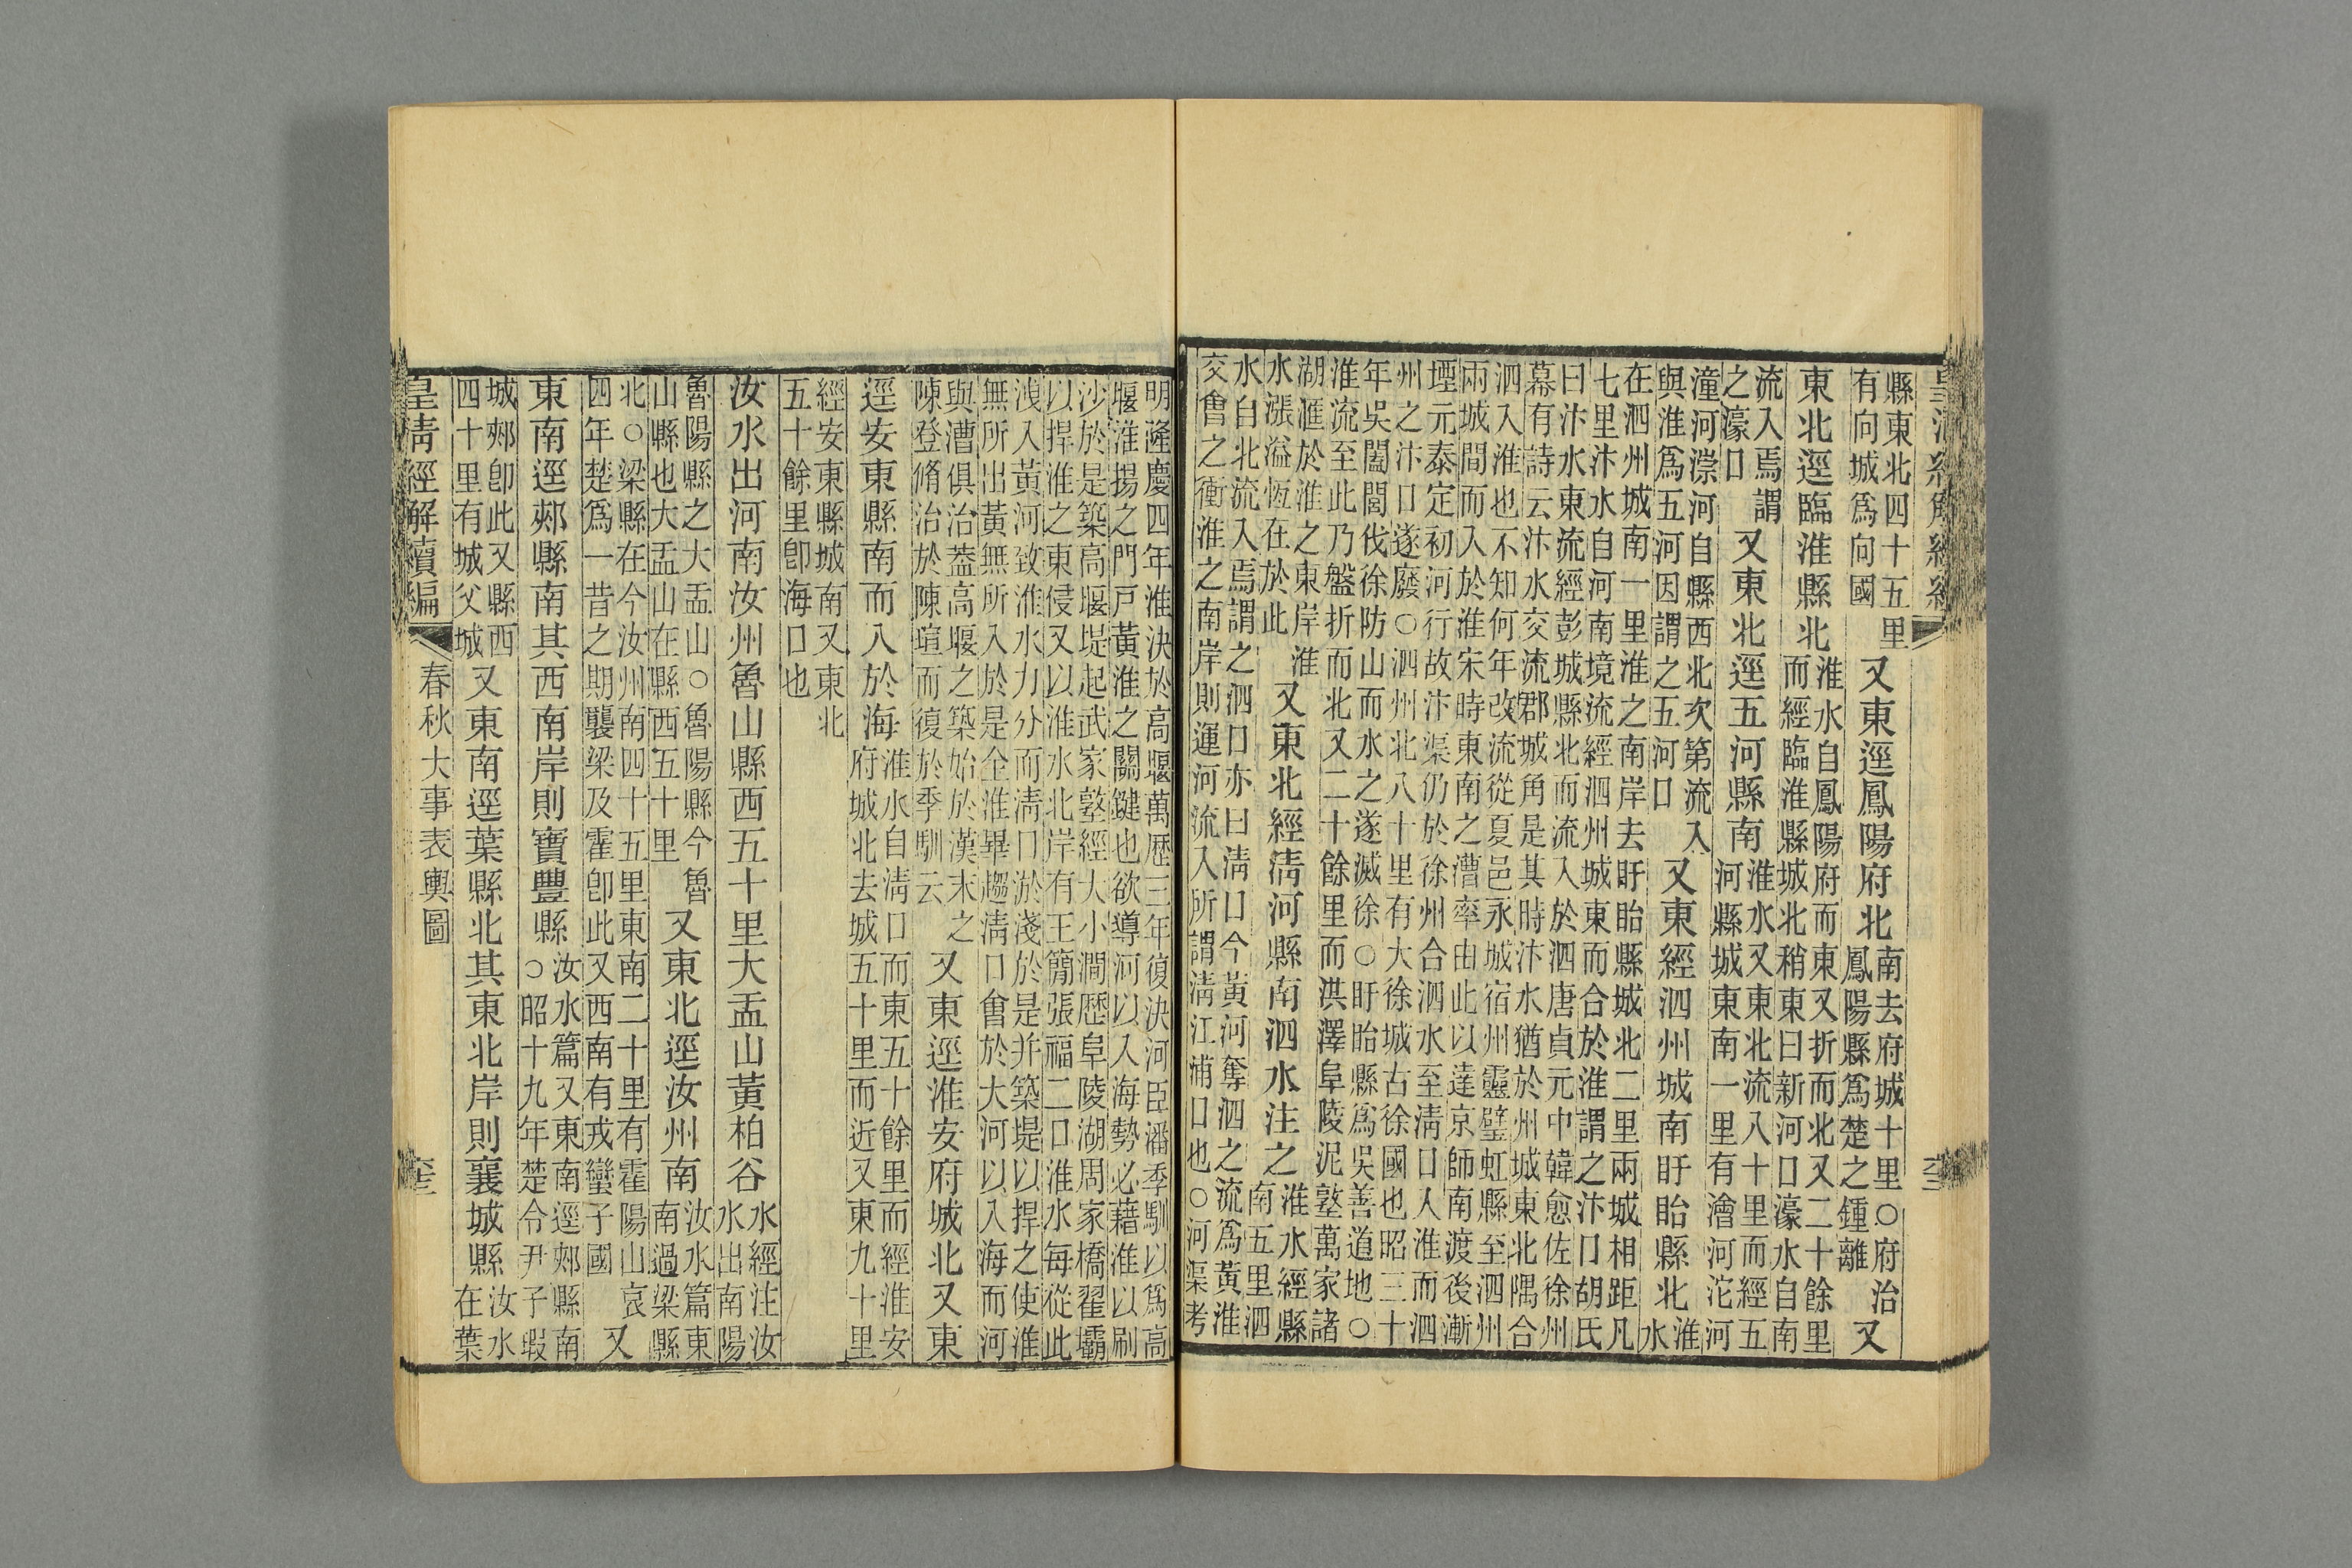 皇清經解續編
縣東北四十五里有向城爲向國又東逕鳳陽府北南去府城十里○府治鳳陽縣爲楚之鍾離又
東北逕臨淮縣北淮水自鳳陽府而東又折而北又二十餘里而經臨淮縣城北稍東曰新河口濠水自南
流入焉謂之濠口又東北逕五河縣南淮水又東北流八十里而經五河縣城東南一里有澮河沱河
潼河漴河自縣西北次第流入與淮爲五河因謂之五河口又東經泗州城南盱眙縣北淮水
在泗州城南一里淮之南岸去盱眙縣城北二里兩城相距凡七里汴水自河南境流經泗州城東而合於淮謂之汴口胡氏
曰汴水東流經彭城縣北而流入於泗唐貞元中韓愈佐徐州幕有詩云汴水交流郡城角是其時汴水猶於州城東北隅合
泗入淮也不知何年改流從夏邑永城宿州靈璧虹縣至泗州兩城間而入於淮宋時東南之漕率由此以達京師南渡後漸
堙元泰定初河行故汴渠仍於徐州合泗水至清口入淮而泗州之汴口遂廢○泗州北八十里有大徐城古徐國也昭三十
年吳闔閭伐徐防山而水之遂滅徐○盱眙縣爲吳善道地○淮流至此乃盤折而北又二十餘里而洪澤阜陵泥墪萬家諸
湖滙於淮之東岸淮水漲溢恆在於此又東北經清河縣南泗水注之淮水經縣南五里泗
水自北流入焉謂之泗口亦曰清口今黃河奪泗之流爲黃淮交會之衝淮之南岸則運河流入所謂清江浦口也○河渠考
明隆慶四年淮決於高堰萬歷三年復決河臣潘季馴以爲高堰淮揚之門戸黃淮之關鍵也欲導河以入海勢必藉淮以刷
沙於是築高堰堤起武家墪經大小澗歷阜陵湖周家橋翟壩以捍淮之東侵又以淮水北岸有王簡張福二口淮水每從此
洩入黃河致淮水力分而清口淤淺於是并築堤以捍之使淮無所出黃無所入於是全淮畢趨清口會於大河以入海而河
與漕俱治葢高堰之築始於漢末之陳登脩治於陳瑄而復於季馴云又東逕淮安府城北又東
逕安東縣南而入於海淮水自清口而東五十餘里而經淮安府城北去城五十里而近又東九十里
經安東縣城南又東北五十餘里卽海口也
汝水出河南汝州魯山縣西五十里大盂山黃柏谷水經注汝水出南陽
魯陽縣之大盂山○魯陽縣今魯山縣也大盂山在縣西五十里又東北逕汝州南汝水篇東南過梁縣
北○梁縣在今汝州南四十五里東南二十里有霍陽山哀四年楚爲一昔之期襲梁及霍卽此又西南有戎蠻子國又
東南逕郟縣南其西南岸則寶豐縣汝水篇又東南逕郟縣南○昭十九年楚令尹子瑕
城郟卽此又縣西四十里有城父城又東南逕葉縣北其東北岸則襄城縣汝水在葉
皇清經解續編
春秋大事表輿圖